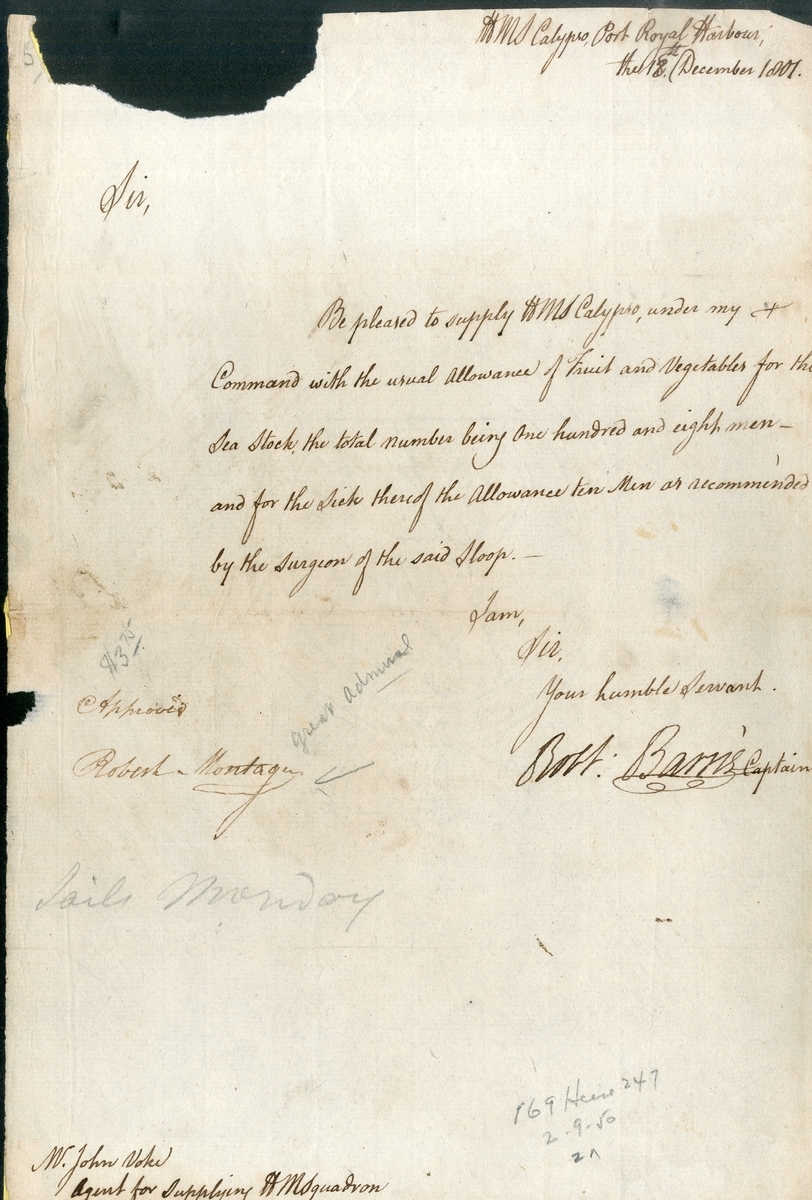 HMS Calypso, Port Royal Harbour,
the 18th December 1801.
Sir,
Be pleased to supply HMS Calypso, under my +
Command with the usual Allowance of Fruit and Vegetables for the
Sea Stock, the total number being One hundred and eight men —
and for the Sick thereof the Allowance ten Men as recommended
by the Surgeon of the said Sloop. —
I am,
Sir,
Your humble Servant.
Robt: Barrie Captain
$3 75
Approved
great admiral
Robert Montagu
Sails Monday
169 247
2-9-50
Mr. John Voke
Agent for Supplying HMSquadron